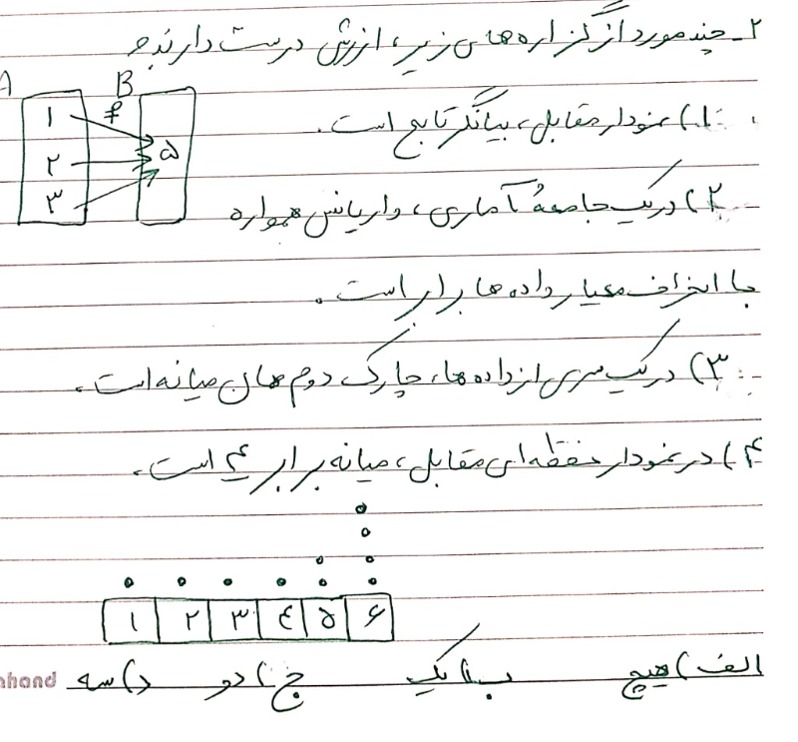 ۲_ چند مورد از گزاره‌های زیر، ارزش درست دارند؟
A B
۱) نمودار مقابل، بیانگر تابع است.
۱ f
۲ ۵
۳
۲) در یک جامعهٔ آماری، واریانس همواره
با انحراف معیار داده‌ها برابر است.
۳) در یک سری از داده‌ها، چارک دوم همان میانه است.
۴) در نمودار نقطه‌ای مقابل، میانه برابر ۴ است.
۱ ۲ ۳ ٤ ۵ ۶
الف) هیچ ب) یک ج) دو د) سه